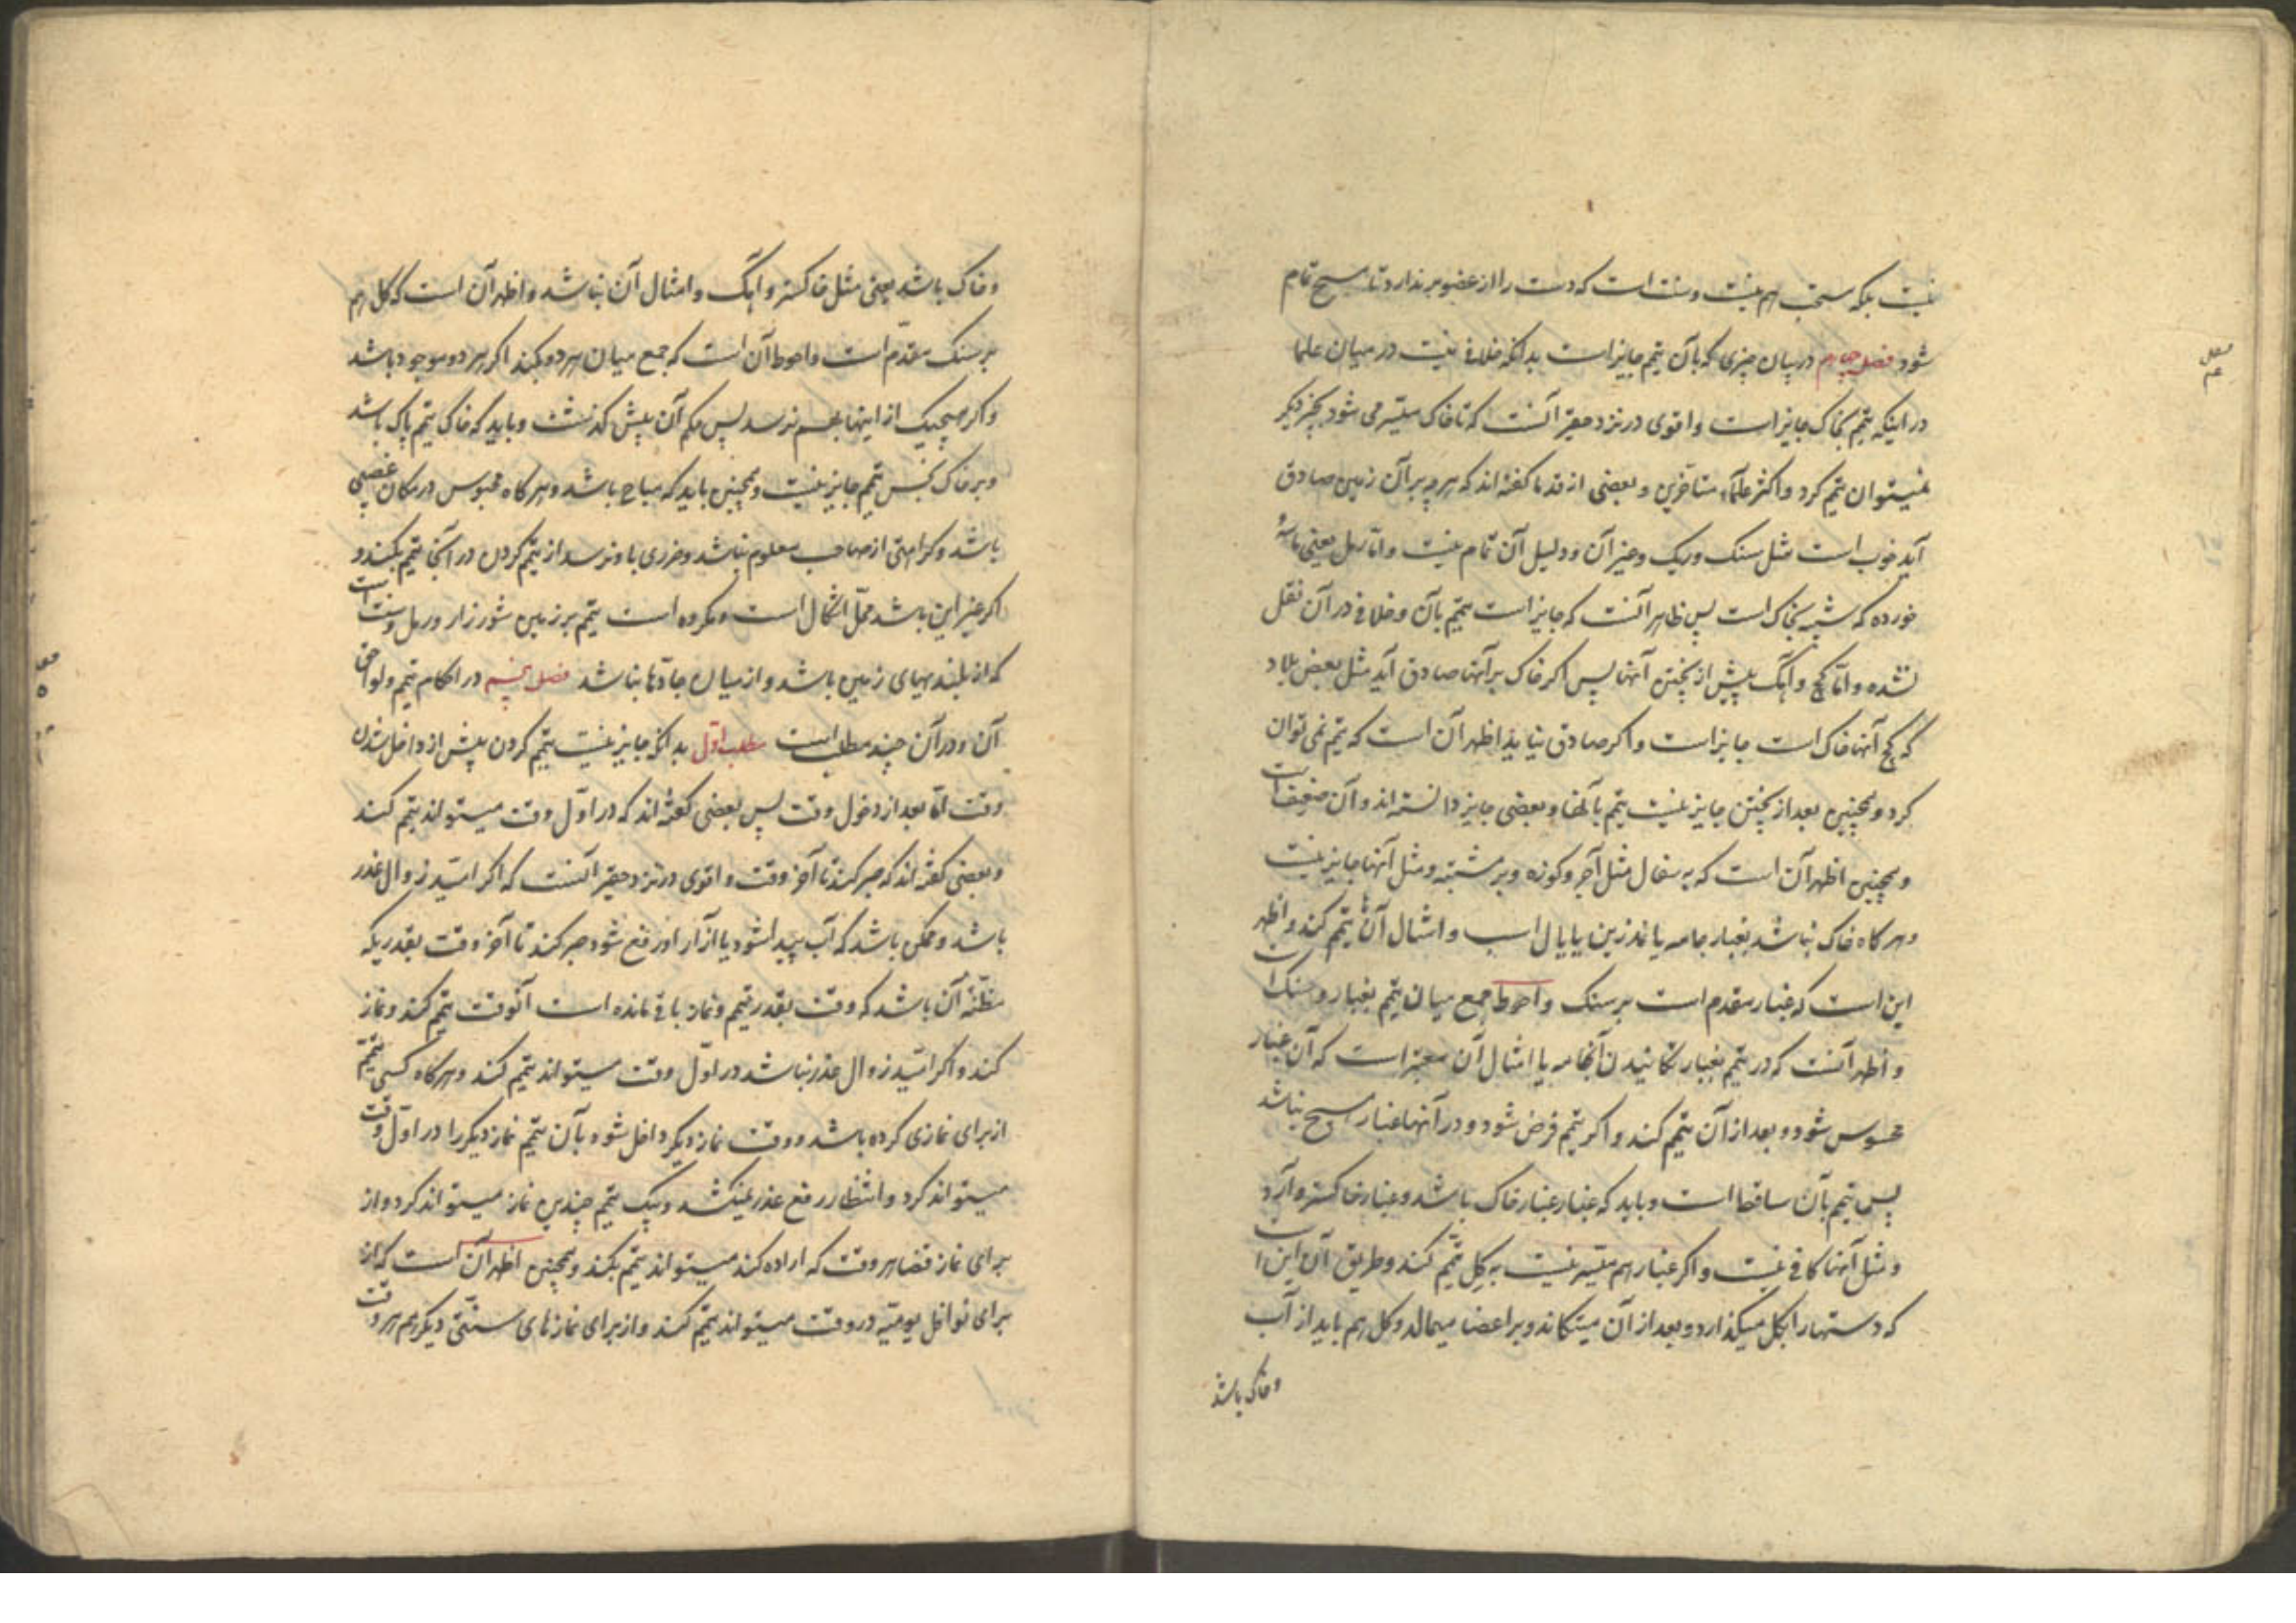 نیست بلکه مستحب هم نیست و سنت است که دست را از عضو بر ندارد تا مسح تمام
شود فصل چهارم در بیان چیزی که بآن تیمم جایز است بدانکه خلافی نیست در میان علما
در اینکه تیمم بخاک جایز است و اقوی در نزد حقیر آنست که تا خاک میسّر می شود بچیز دیکر
نمیتوان تیمم کرد و اکثر علماء متاخرین و بعضی از قدما کفته اند که هر چه بر آن زمین صادق
آید خوب است مثل سنک و ریک و غیر آن و دلیل آن تمام نیست و امّا رمل یعنی ماسهٔ
خورده که شبیه بخاک است پس ظاهر آنست که جایز است تیمم بآن و خلافی در آن نقل
نشده و امّا کچ و آهک پیش از پختن آنها پس اکر خاک بر آنها صادق آید مثل بعض بلاد
که کچ آنها خاک است جایز است و اکر صادق نیاید اظهر آن است که تیمم نمی توان
کرد و همچنین بعد از پختن جایز نیست تیمم بآنها و بعضی جایز دانسته اند و آن ضعیف است
و همچنین اظهر آن است که به سفال مثل آجر و کوزه و بر مشتبه و مثل آنها جایز نیست
و هر کاه خاک نباشد بغبار جامه یا نمد زین یا یال اسب و امثال آن ها تیمم کند و اظهر
این است که غبار مقدم است بر سنک و احوط جمع میان تیمم بغبار و سنک است
و اظهر آنست که در تیمم بغبار تکانیدن آنجامه یا امثال آن معتبر است که آن غبار
محسوس شود و بعد از آن تیمم کند و اکر تیمم فرض شود و در آنها غبار مسح نباشد
پس تیمم بآن ساقط است و باید که غبار غبار خاک باشد و غبار خاکستر و آرد
و مثل آنها کافی نیست و اکر غبار هم میسّر نیست به کِل تیمّم کند و طریق آن این است
که دستها را بکل میکذارد و بعد از آن میتکاند و بر اعضا میمالد و کل هم باید از آب
و خاک باشد
و خاک باشد یعنی مثل خاکستر و آهک و امثال آن نباشد و اظهر آن است که کل هم
بر سنک مقدّم است و احوط آن است که جمع میان هر دو بکند اکر هر دو موجود باشد
و اکر هیچیک از اینها بهم نرسد پس حکم آن پیش کذشت و باید که خاک تیمم پاک باشد
و بر خاک نجس تیمم جایز نیست و همچنین باید که مباح باشد و هر کاه محبوس در مکان غصبی
باشد و کراهتی از صاحب معلوم نباشد و ضرری باو نرسد از تیمم کردن در آنجا تیمم بکند و
اکر غیر این باشد محلّ اشکال است و مکروه است تیمم بر زمین شوره زار و رمل و سنت است
که از بلندیهای زمین باشد و از میان جادّها نباشد فصل پنجم در احکام تیمم و لواحق
آن و در آن چند مطلب است مطلب اوّل بدانکه جایز نیست تیمم کردن پیش از داخل شدن
وقت امّا بعد از دخول وقت پس بعضی کفته اند که در اوّل وقت میتواند تیمم کند
و بعضی کفته اند که صبر کند تا آخر وقت و اقوی در نزد حقیر آنست که اکر امید زوال عذر
باشد و ممکن باشد که آب پیدا شود یا آزار او رفع شود صبر کند تا آخر وقت بقدریکه
مظنّهٔ آن باشد که وقت بقدر تیمم و نماز باقی مانده است آنوقت تیمم کند و نماز
کند و اکر امید زوال عذر نباشد در اوّل وقت میتواند تیمم کند و هرکاه کسی تیمم
از برای نمازی کرده باشد و وقت نماز دیکر داخل شود بآن تیمم نماز دیکر را در اوّل وقت
میتواند کرد و انتظار رفع عذر نمیکشد و بیک تیمم چندین نماز میتواند کرد و از
برای نماز قضا هر وقت که اراده کند میتواند تیمم بکند و همچنین اظهر آن است که از
برای نوافل یومیّه در وقت میتواند تیمّم کند و از برای نمازهای سنّتی دیکر هم هر وقت